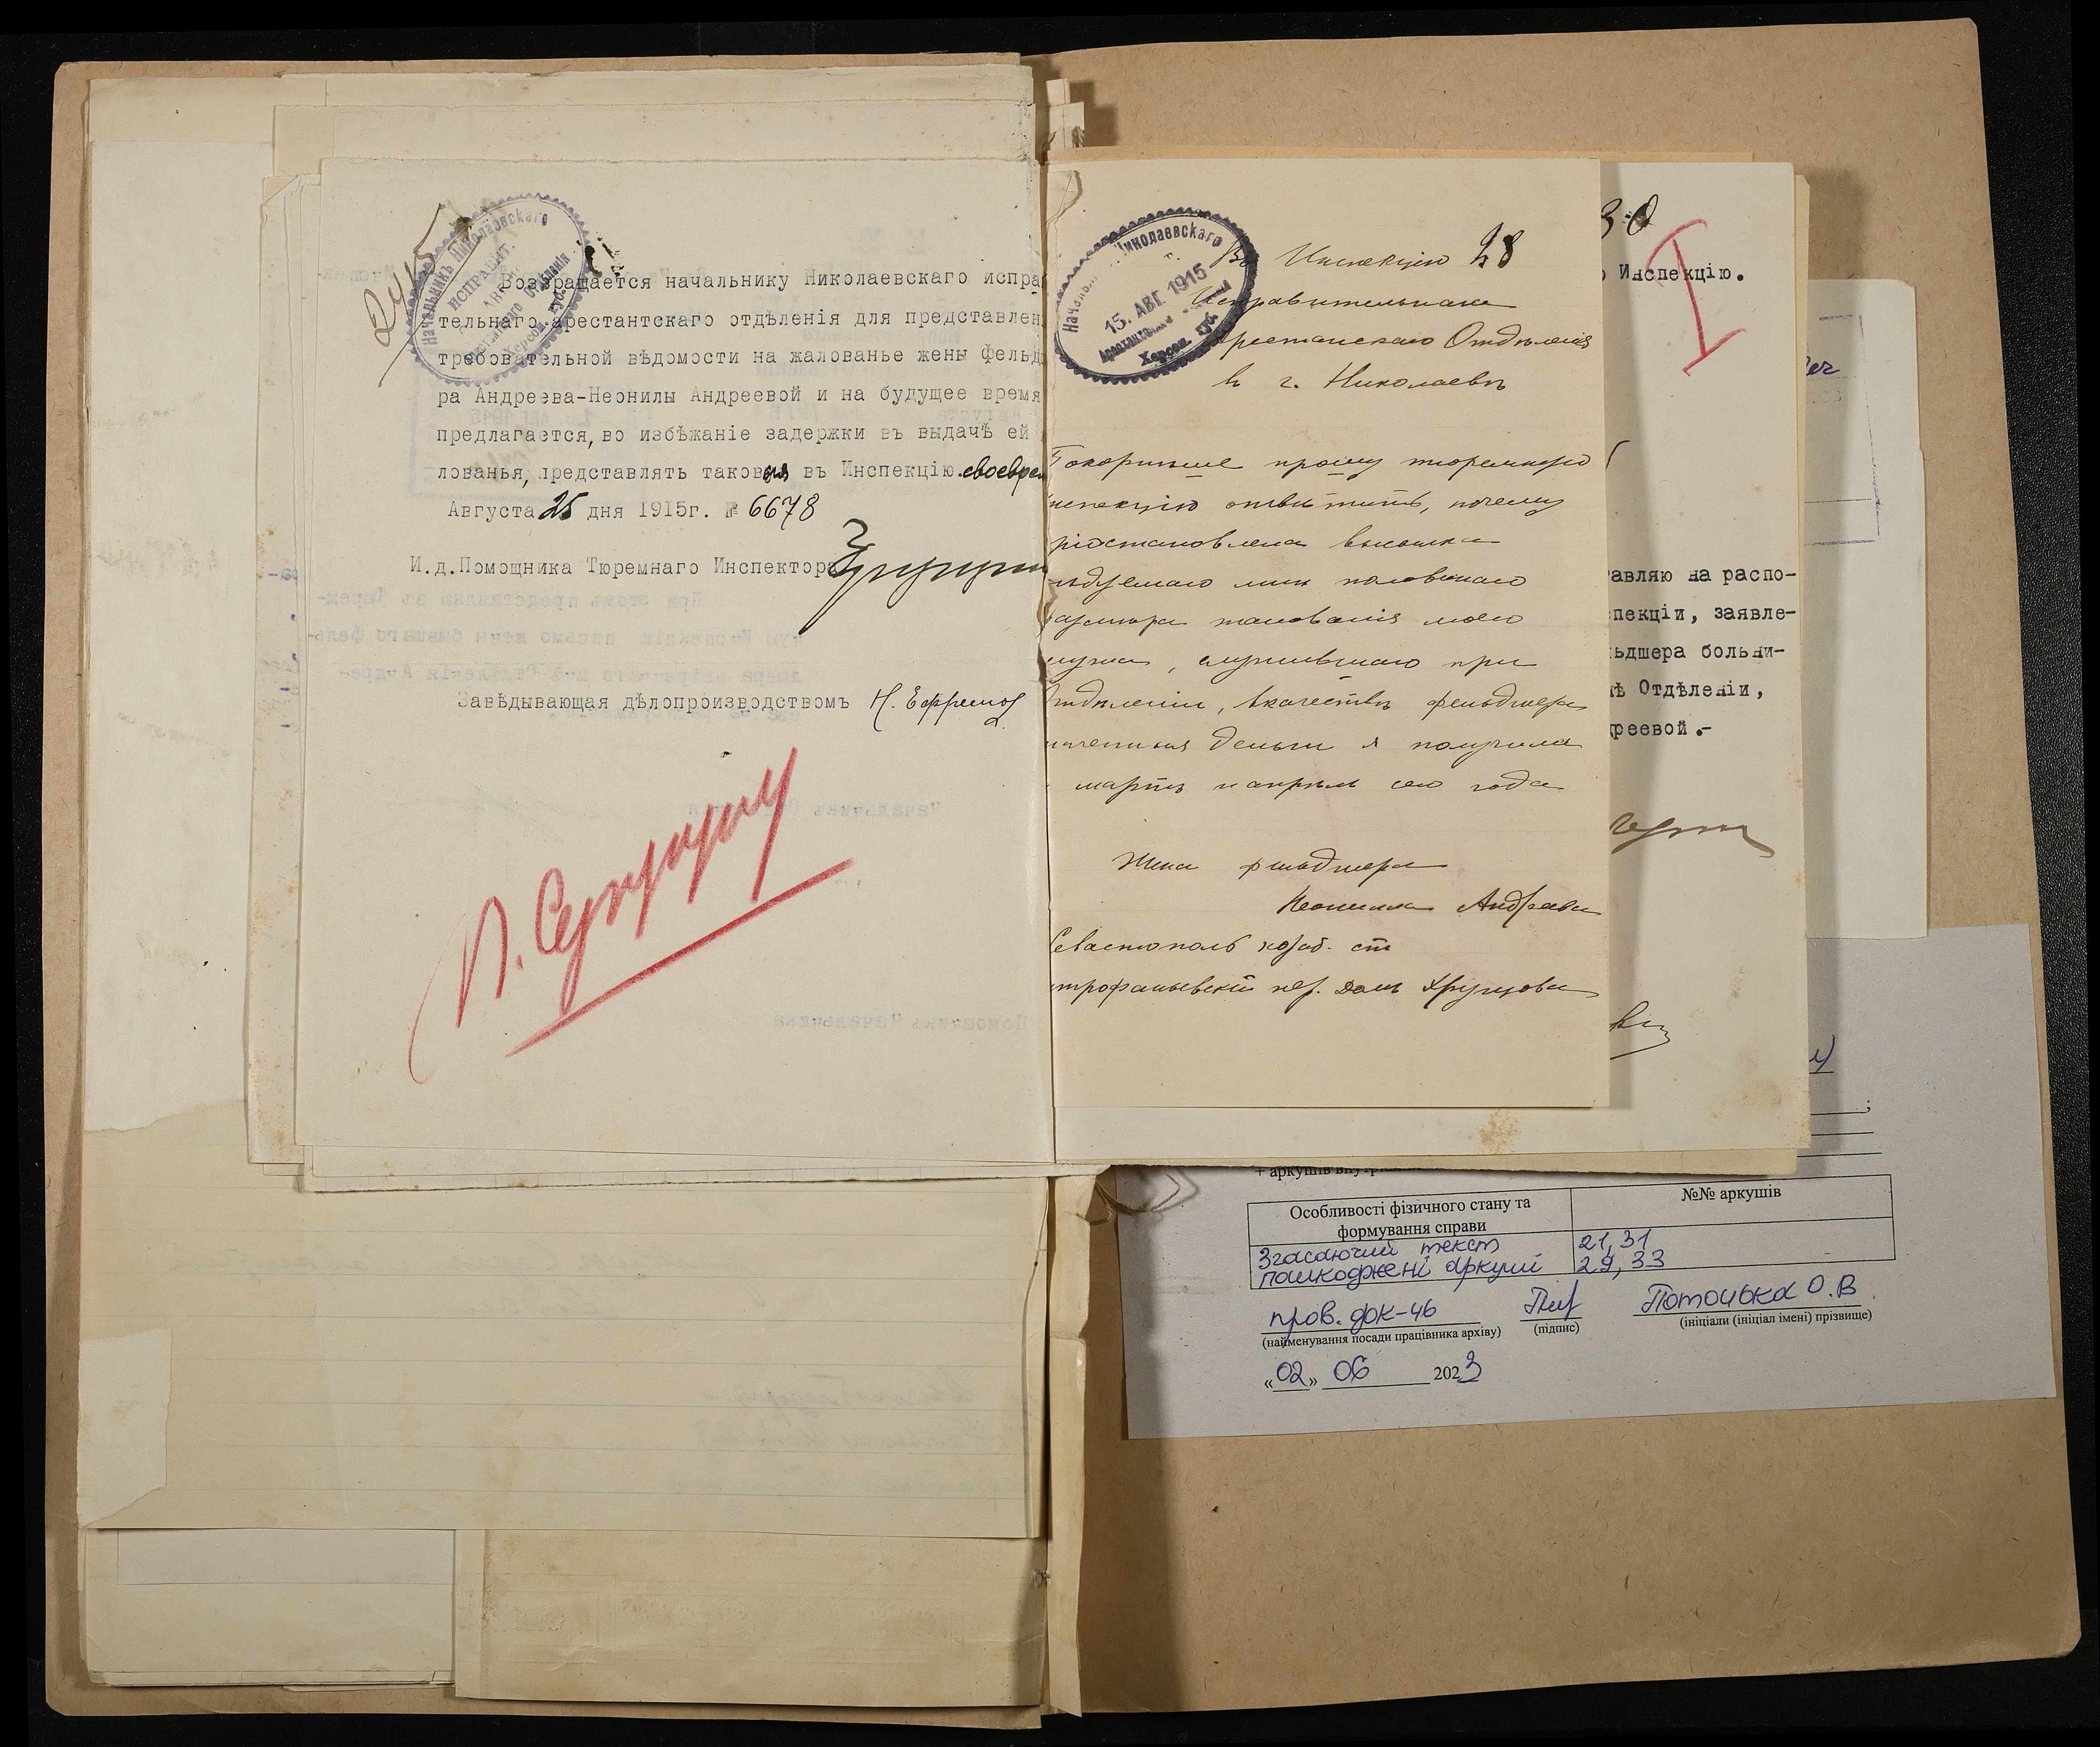 2445
Начальникъ Николаевскаго
ИСПРАВИТ.
Херсон. губ.
Возвращается начальнику Николаевскаго испра
тельнаго арестантскаго отдѣленія для представлен
требовательной вѣдомости на жалованье жены фельд
ра Андреева-Неонилы Андреевой и на будущее время
предлагается, во избѣжаніе задержки въ выдачѣ ей
лованья, представлять таковыя въ Инспекцію своевре
Августа 25 дня 1915г. № 6678
И.д.Помощника Тюремнаго Инспектора
Завѣдывающая дѣлопроизводствомъ Н. Ефремов
28
Николаевскаго
15. АВГ. 1915
Херсон. губ.
Во Инспекцію
Исправительнаго
Арестанскаго Отдѣленія
в г. Николаевѣ
Покорнѣйше прошу тюремную
инспекцію отвѣтить, почему
пріостановлена высылка
половиннаго
жалованія моего
мужа, служившаго при
Отдѣленіи, вкачествѣ фельдшера
деньги я получила
мартъ и апрѣль сего года
Жена фельдшера
Неонила Андреева
Севастополь кораб. ст
трофаньевскій пер. домъ Хрущова
30
I
о Инспекцію.
авляю на распо-
спекціи, заявле-
льдшера больни-
мѣ Отдѣленіи,
дреевой.-
+ аркушів внутр
Особливості фізичного стану та формування справи
№№ аркушів
Згасаючий текст 21, 31
пошкоджені аркуші 29, 33
пров. док-чб
(найменування посади працівника архіву)
(підпис)
Потоцька О.В
(ініціали (ініціал імені) прізвище)
«02» 06 2023